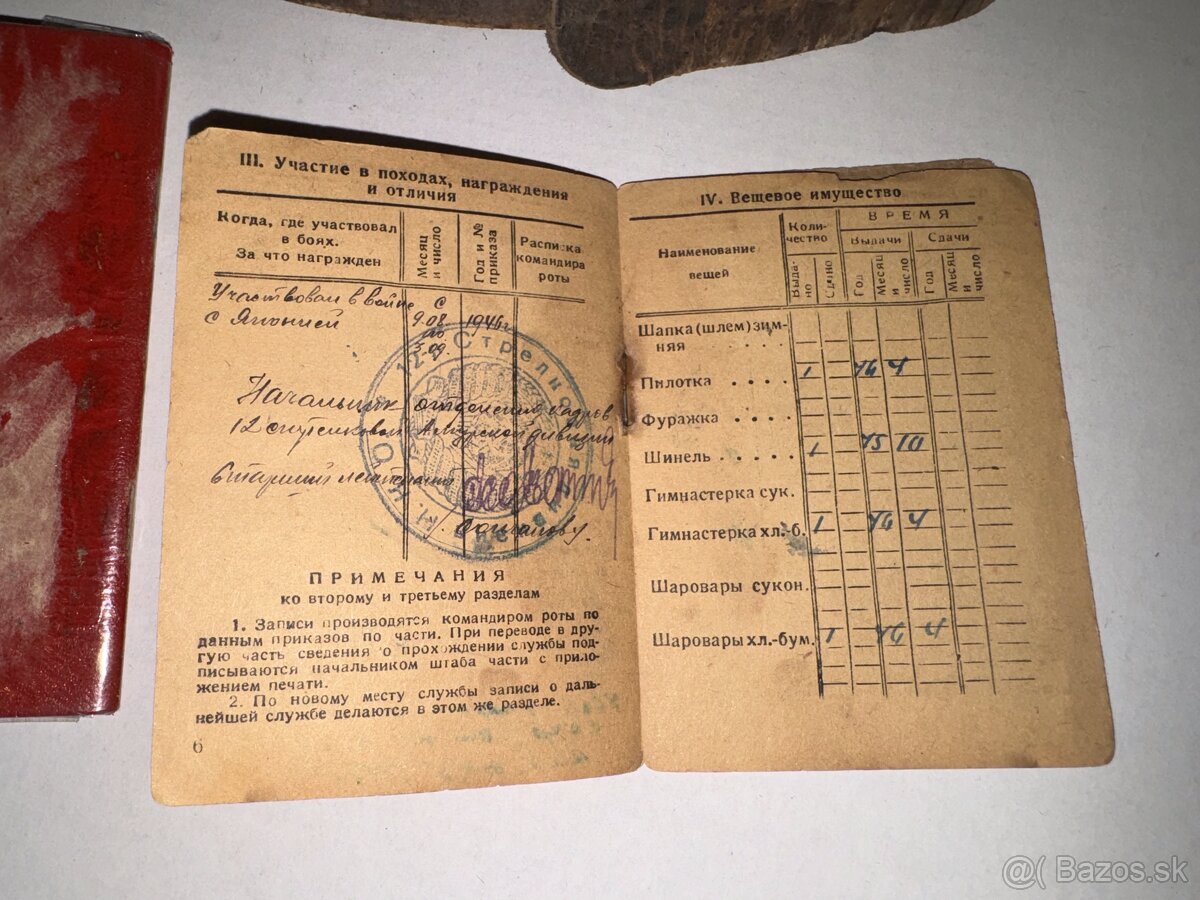 III. Участие в походах, награждения
и отличия
Когда, где участвовал
в боях.
За что награжден
Месяц
и число
Год и №
приказа
Расписка
командира
роты
Участвовал в войне
с Японией
с
9.08
по
3.09
1945 г.
12 Стрелков
Начальник отделения кадров
12 стрелковой Амурской дивизии
Старший лейтенант
ПРИМЕЧАНИЯ
ко второму и третьему разделам
1. Записи производятся командиром роты по
данным приказов по части. При переводе в дру-
гую часть сведения о прохождении службы под-
писываются начальником штаба части с прило-
жением печати.
2. По новому месту службы записи о даль-
нейшей службе делаются в этом же разделе.
6
IV. Вещевое имущество
Наименование
вещей
Коли-
чество
ВРЕМЯ
Выдачи
Сдачи
Выда-
но
Сдано
Год
Месяц
и
число
Год
Месяц
и
число
Шапка (шлем) зим-
няя . . . .
Пилотка . . . . 1
Фуражка . . . .
Шинель . . . . . 1 45 III
Гимнастерка сук.
Гимнастерка хл.-б. 1
Шаровары сукон.
Шаровары хл.-бум. 1
@( Bazos.sk